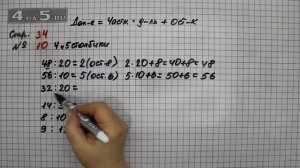 4 a 5 GDZ
Дел-е = Частн. · д-ль + Ост-к
Стр. 34
№ 10 4 и 5 столбики
48 : 20 = 2 (ост. 8) 2 · 20 + 8 = 40 + 8 = 48
56 : 10 = 5 (ост. 6) 5 · 10 + 6 = 50 + 6 = 56
32 : 20 =
14 :
8 : 10
9 : 1